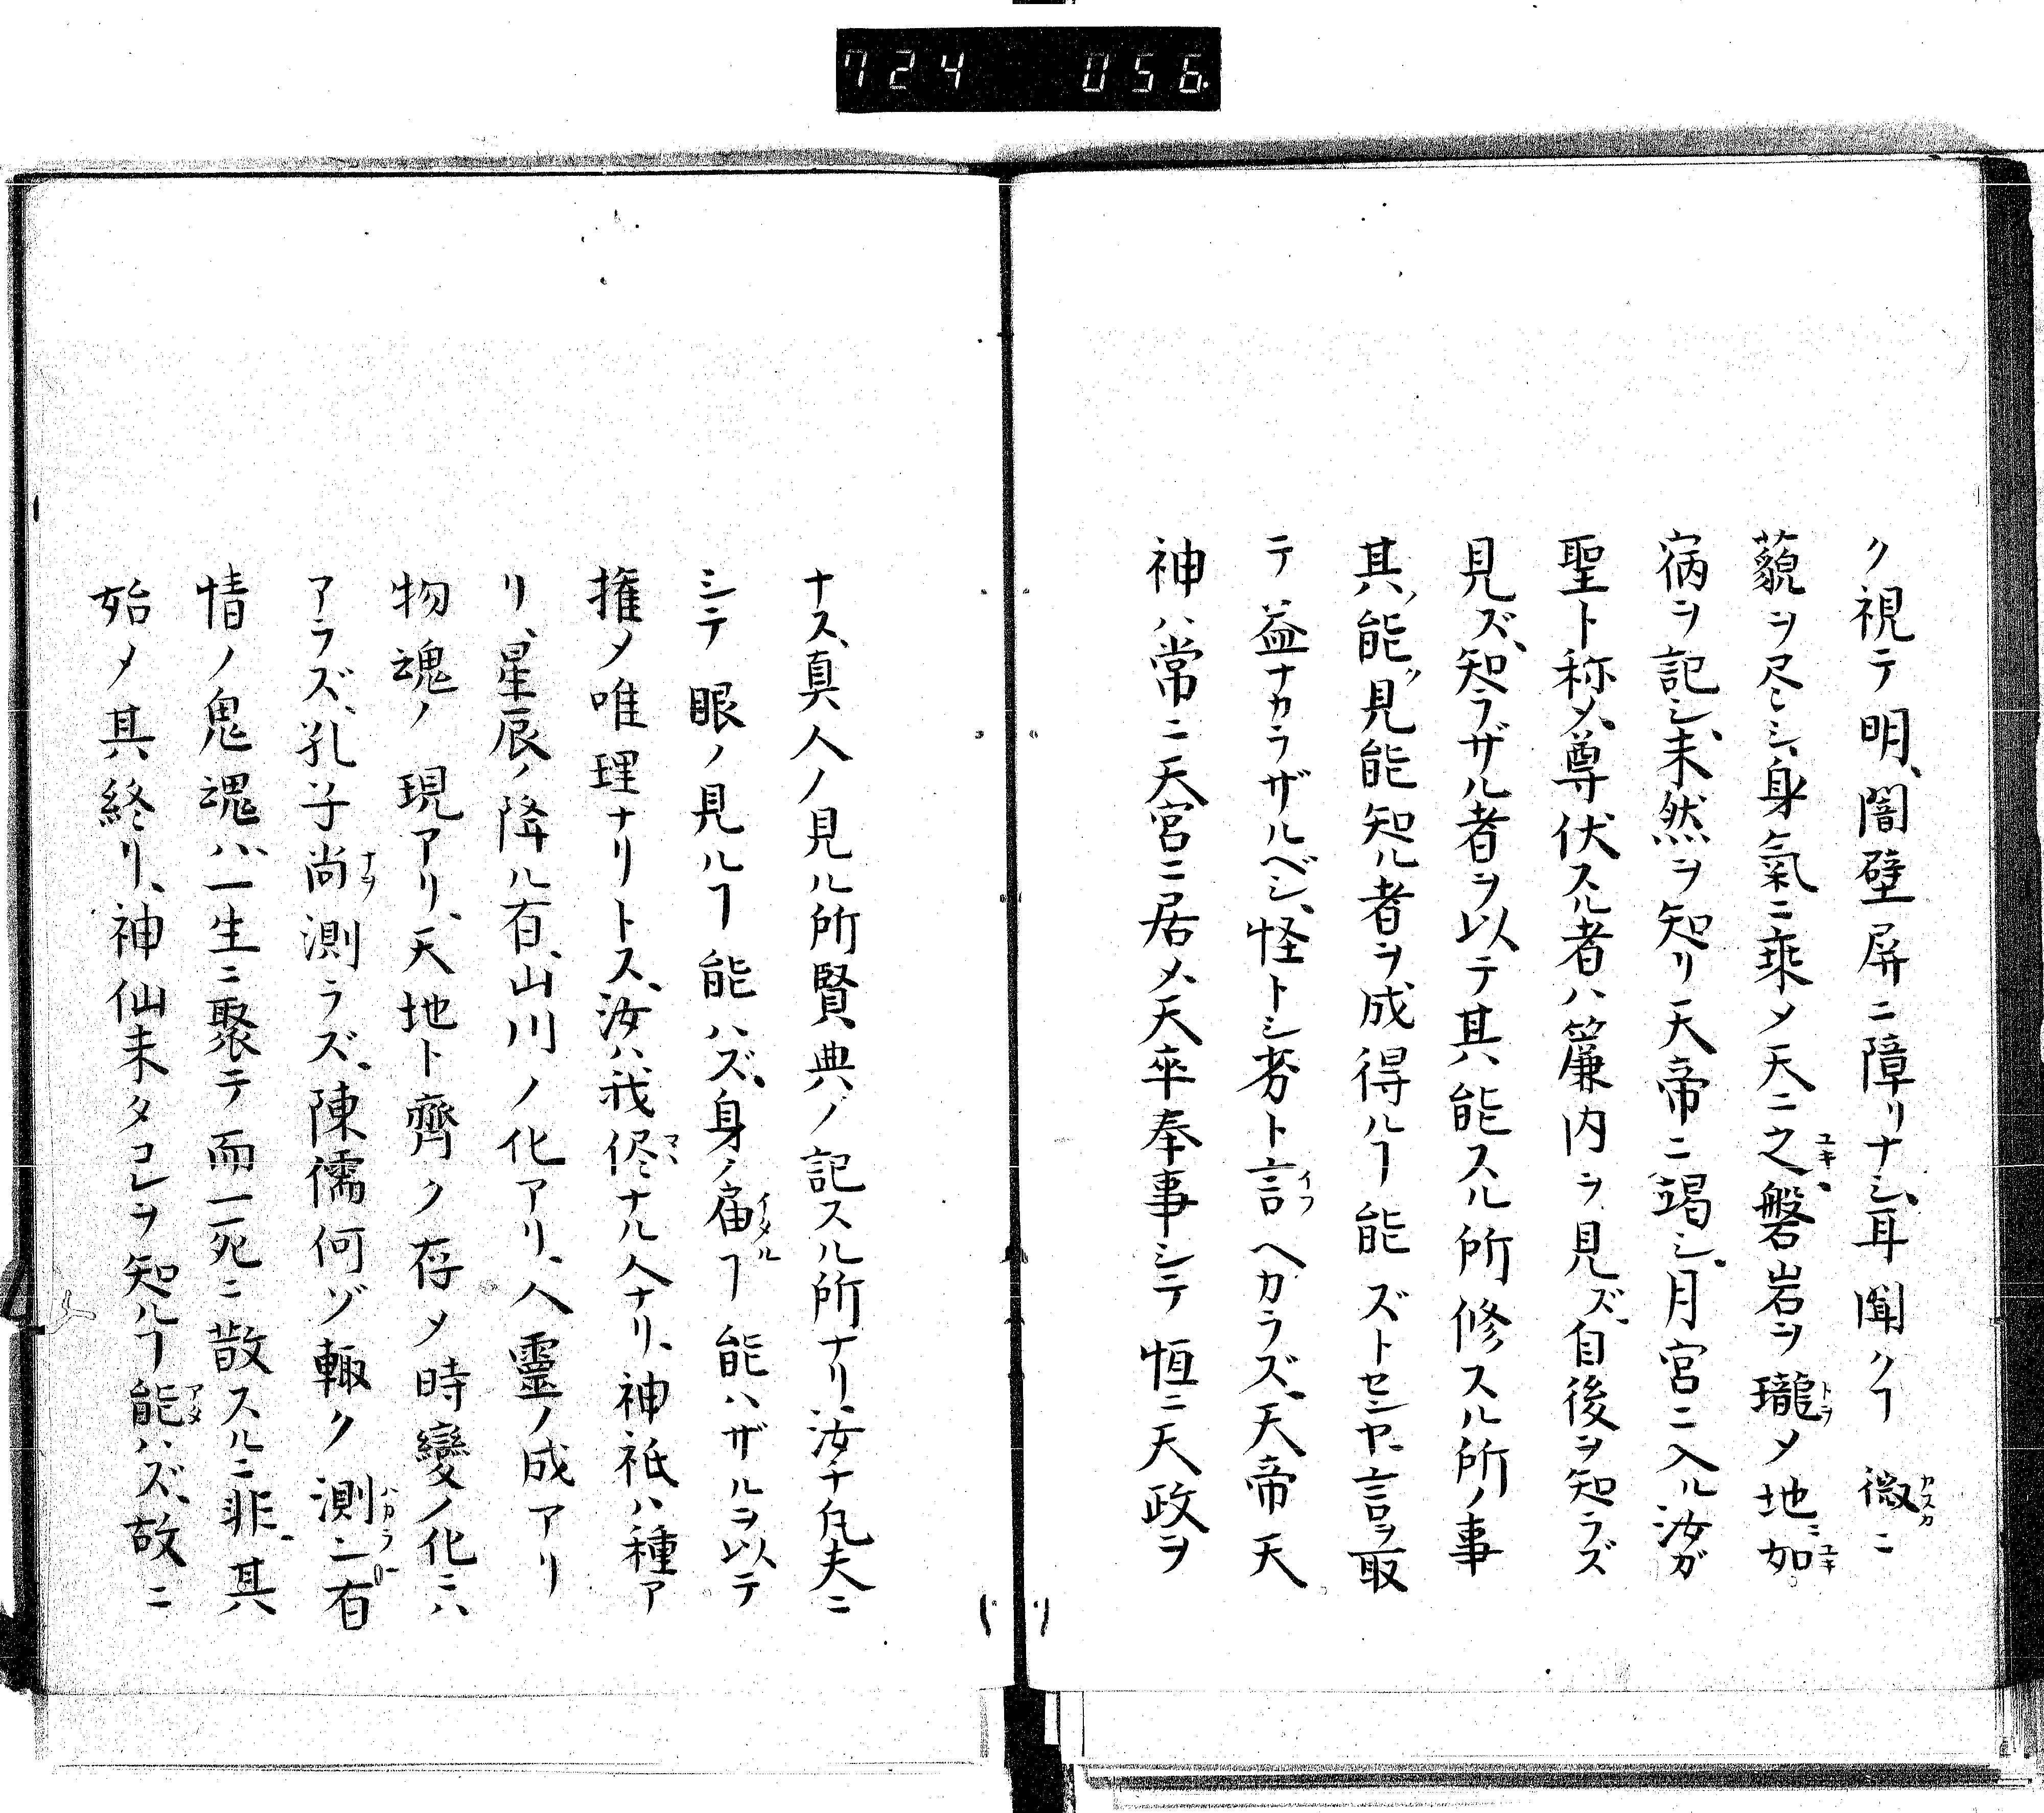 724 056
ク視テ明、闇壁屏ニ障リナシ、耳聞クヿ微ニ
藐ヲ尽シ、身氣ニ乘メ天ニ之、磐岩ヲ瓏メ地ニ如
病ヲ記シ、未然ヲ知リ天帝ニ竭シ、月宮ニ入ル汝ガ
聖ト称メ、尊伏スル者ハ簾内ヲ見ズ、自後ヲ知ラズ
見ズ、知ラザル者ヲ以テ其能スル所修スル所ノ事
其能見能知ル者ヲ成得ルヿ能ズトセンヤ、言ヲ取
テ益ナカラザルベシ、怪トシ労ト言ヘカラズ、天帝天
神ハ常ニ天宮ニ居メ、天卒奉事シテ恒ニ天政ヲ
ナス、真人ノ見ル所賢典ノ記スル所ナリ、汝チ凡夫ニ
シテ眼ノ見ルヿ能ハズ、身ノ届ヿ能ハザルヲ以テ
推メ唯理ナリトス、汝ハ我侭ナル人ナリ、神祇ハ種ア
リ、星辰ノ降ル有、山川ノ化アリ、人靈ノ成アリ
物魂ノ現アリ、天地ト齊ク存メ時變ノ化ニハ
アラズ、孔子尚測ラズ、陳儒何ゾ輙ク測ン有
情ノ鬼魂ハ、一生ニ聚テ而一死ニ散スルニ非、其
始メ其終リ、神仙未タコレヲ知ルヿ能ハズ、故ニ